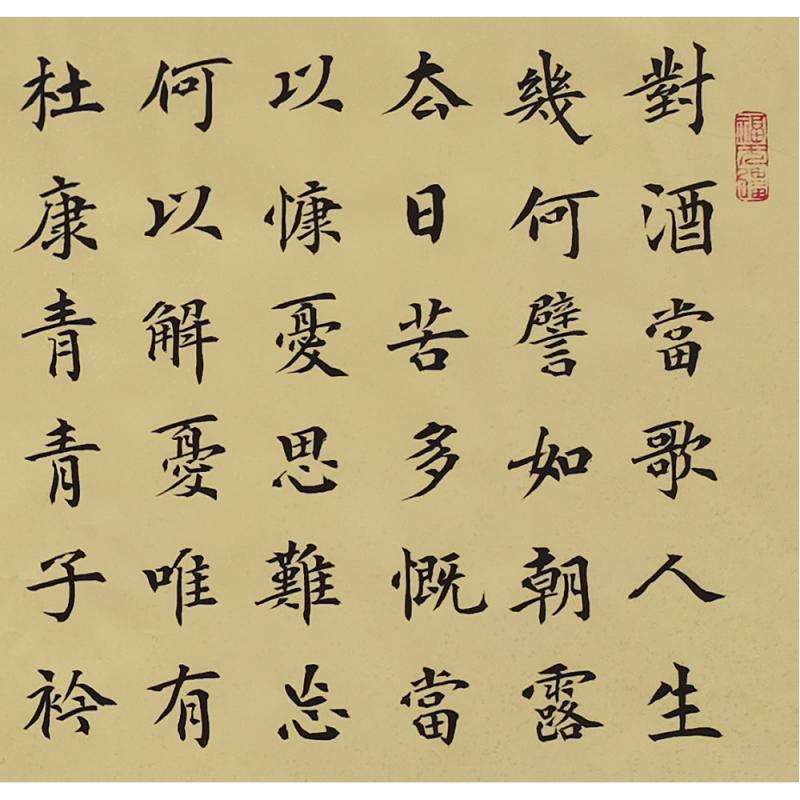 對酒當歌人生
幾何譬如朝露
去日苦多慨當
以慷憂思難忘
何以解憂唯有
杜康青青子衿